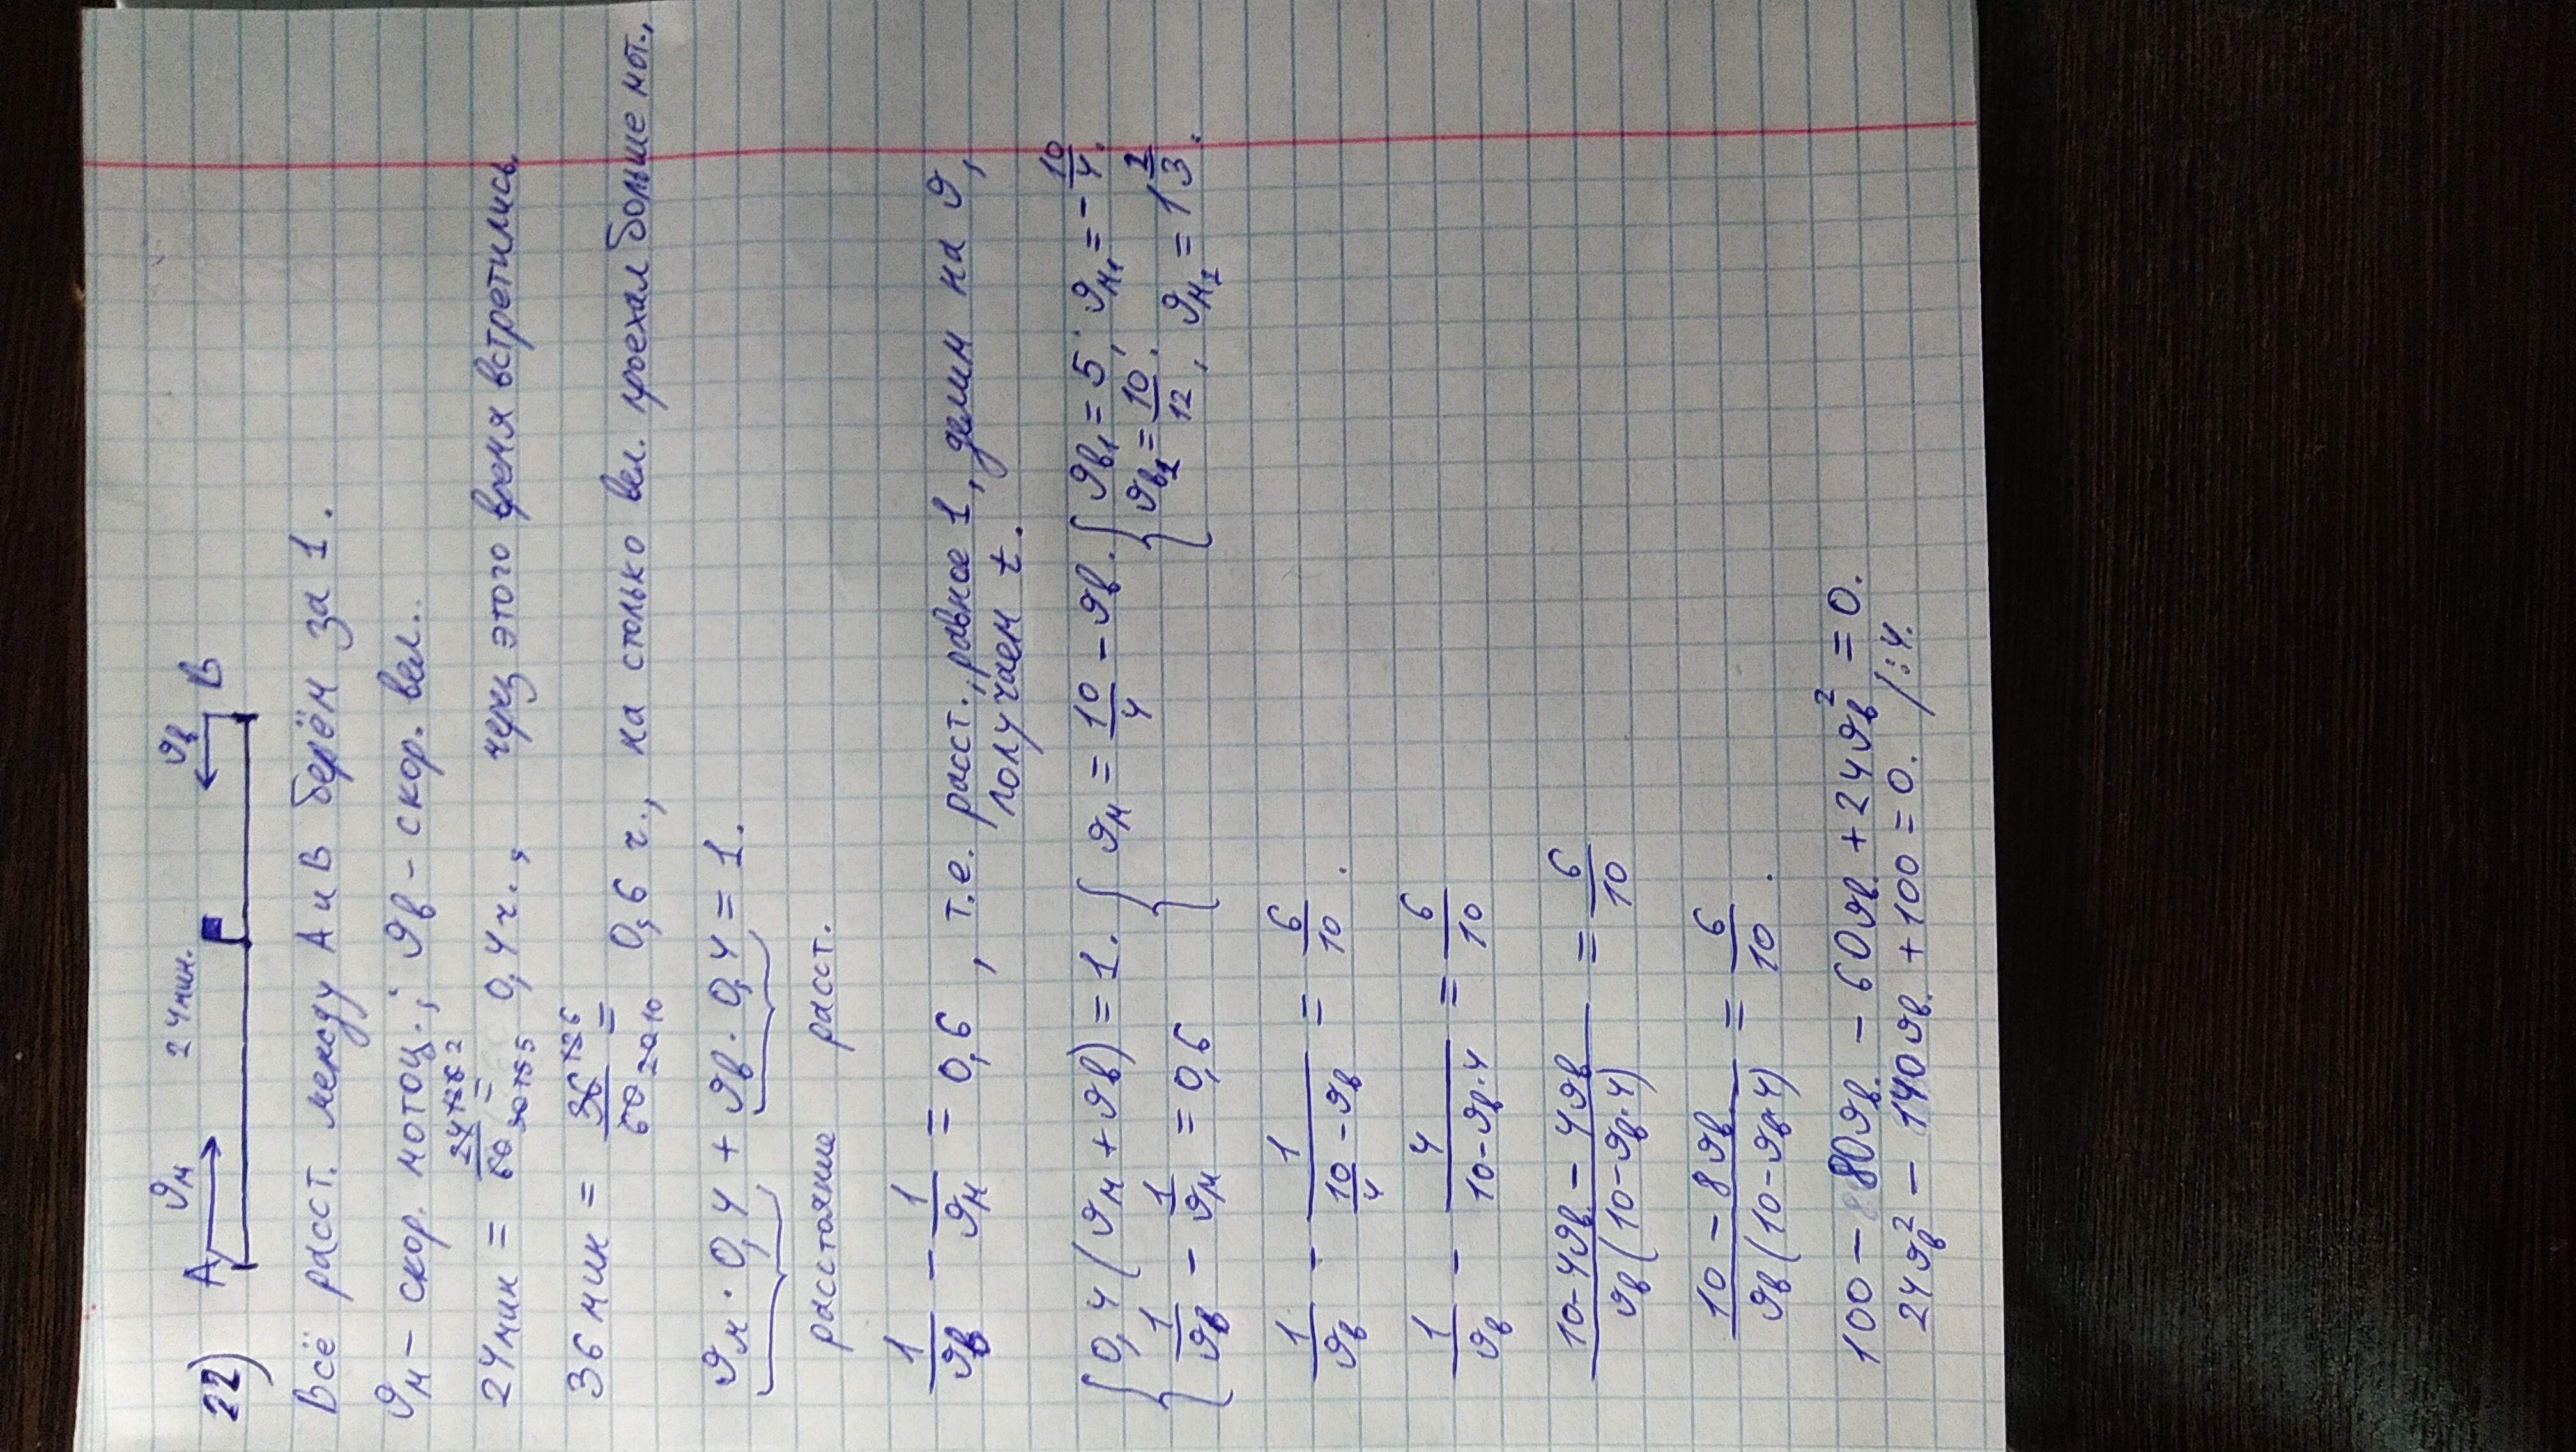 22) A 𝜗м 24 мин. 𝜗в В
Всё расст. между А и В берём за 1.
𝜗м – скор. мотоц.; 𝜗в – скор. вел..
24 мин = 24/60 = 0,4 ч., через этого время встретились.
36 мин = 36/60 = 0,6 ч., на столько вел. проехал больше мот.,
𝜗м · 0,4 + 𝜗в · 0,4 = 1.
расстояние расст.
1/𝜗в – 1/𝜗м = 0,6 , т.е. расст., равное 1, делим на 𝜗,
получаем t.
{ 0,4 (𝜗м + 𝜗в) = 1. { 𝜗м = 10/4 – 𝜗в. { 𝜗в1 = 5; 𝜗м1 = – 10/4.
1/𝜗в – 1/𝜗м = 0,6 𝜗в2 = 10/12, 𝜗м2 = 1 2/3.
1/𝜗в – 1/(10/4 – 𝜗в) = 6/10.
1/𝜗в – 4/(10 – 𝜗в·4) = 6/10
(10 – 4𝜗в – 4𝜗в)/(𝜗в (10 – 𝜗в·4)) = 6/10
(10 – 8𝜗в)/(𝜗в (10 – 𝜗в·4)) = 6/10.
100 – 80𝜗в – 60𝜗в + 24𝜗в² = 0.
24𝜗в² – 140𝜗в + 100 = 0. /:4.